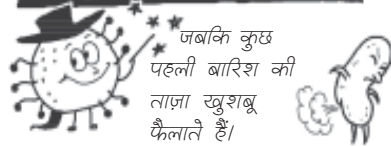 जबकि कुछ
पहली बारिश की
ताज़ा खुशबू
फैलाते हैं।